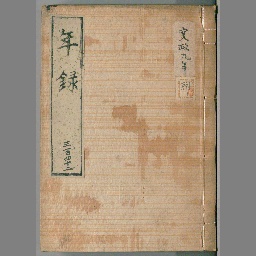 年録
三百四十二
文政九年